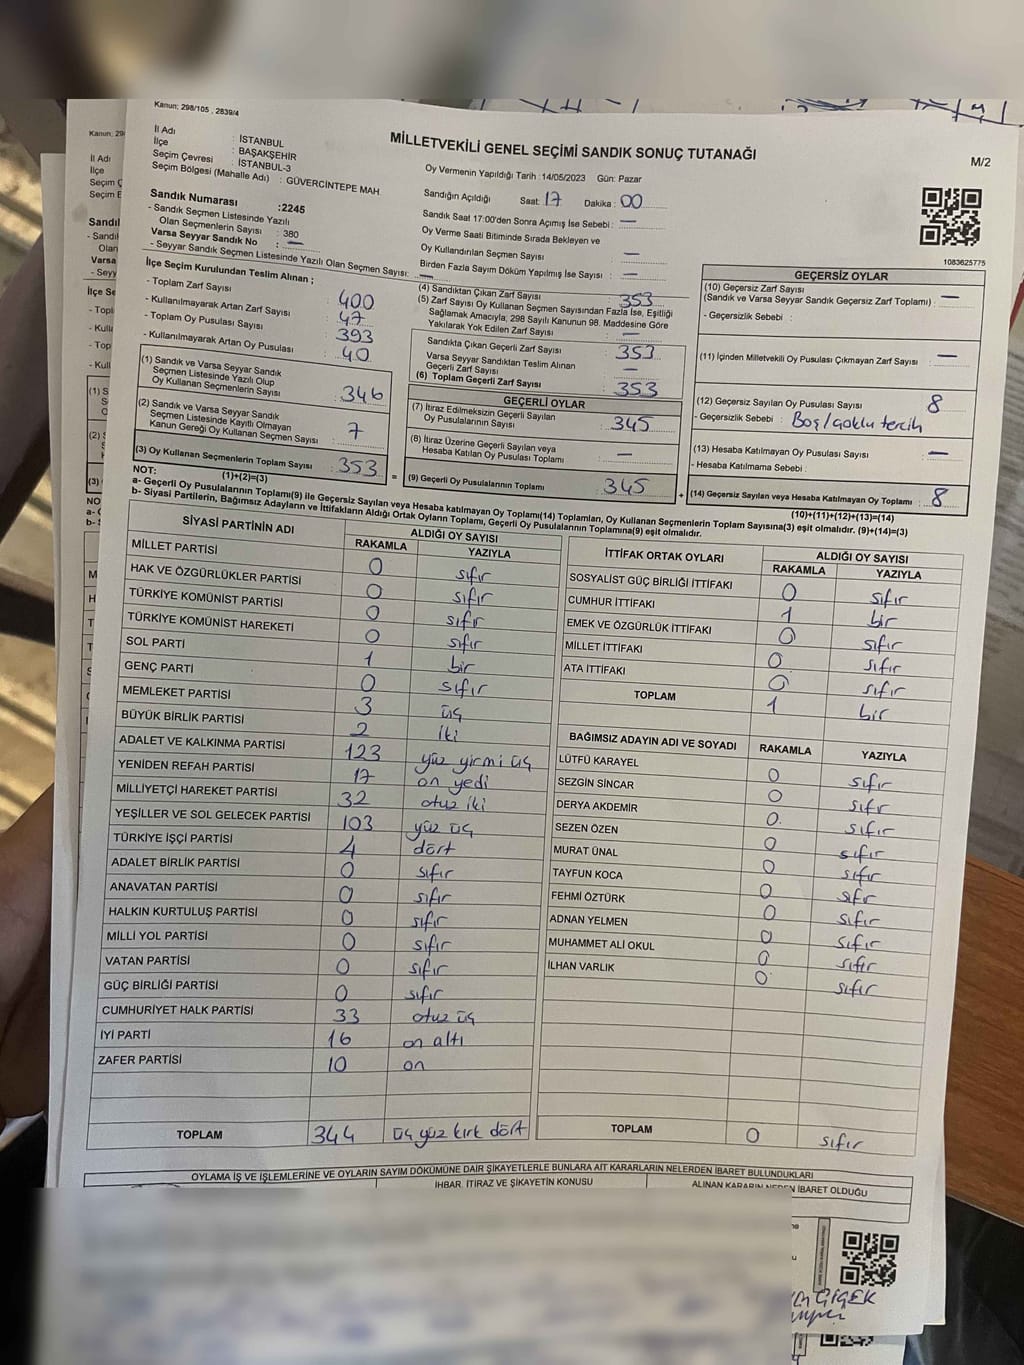 Kanun: 298/105 , 2839/4
MİLLETVEKİLİ GENEL SEÇİMİ SANDIK SONUÇ TUTANAĞI
M/2
İl Adı : İSTANBUL
İlçe : BAŞAKŞEHİR
Seçim Çevresi : İSTANBUL-3
Seçim Bölgesi (Mahalle Adı) : GÜVERCİNTEPE MAH.
Sandık Numarası :2245
- Sandık Seçmen Listesinde Yazılı
Olan Seçmenlerin Sayısı : 380
Varsa Seyyar Sandık No : —
- Seyyar Sandık Seçmen Listesinde Yazılı Olan Seçmen Sayısı: —
Oy Vermenin Yapıldığı Tarih :14/05/2023 Gün: Pazar
Sandığın Açıldığı Saat: 17 Dakika : 00
Sandık Saat 17:00'den Sonra Açımış İse Sebebi : —
Oy Verme Saati Bitiminde Sırada Bekleyen ve
Oy Kullandırılan Seçmen Sayısı : —
Birden Fazla Sayım Döküm Yapılmış İse Sayısı : —
1083625775
İlçe Seçim Kurulundan Teslim Alınan ;
- Toplam Zarf Sayısı : 400
- Kullanılmayarak Artan Zarf Sayısı : 47
- Toplam Oy Pusulası Sayısı : 393
- Kullanılmayarak Artan Oy Pusulası : 40
(1) Sandık ve Varsa Seyyar Sandık
Seçmen Listesinde Yazılı Olup
Oy Kullanan Seçmenlerin Sayısı : 346
(2) Sandık ve Varsa Seyyar Sandık
Seçmen Listesinde Kayıtlı Olmayan
Kanun Gereği Oy Kullanan Seçmen Sayısı : 7
(3) Oy Kullanan Seçmenlerin Toplam Sayısı : 353
(1)+(2)=(3)
(4) Sandıktan Çıkan Zarf Sayısı : 353
(5) Zarf Sayısı Oy Kullanan Seçmen Sayısından Fazla İse, Eşitliği
Sağlamak Amacıyla; 298 Sayılı Kanunun 98. Maddesine Göre
Yakılarak Yok Edilen Zarf Sayısı : —
Sandıkta Çıkan Geçerli Zarf Sayısı : 353
Varsa Seyyar Sandıktan Teslim Alınan
Geçerli Zarf Sayısı : —
(6) Toplam Geçerli Zarf Sayısı : 353
GEÇERLİ OYLAR
(7) İtiraz Edilmeksizin Geçerli Sayılan
Oy Pusulalarının Sayısı : 345
(8) İtiraz Üzerine Geçerli Sayılan veya
Hesaba Katılan Oy Pusulası Toplamı : —
(9) Geçerli Oy Pusulalarının Toplamı : 345
GEÇERSİZ OYLAR
(10) Geçersiz Zarf Sayısı
(Sandık ve Varsa Seyyar Sandık Geçersiz Zarf Toplamı) : —
- Geçersizlik Sebebi :
(11) İçinden Milletvekili Oy Pusulası Çıkmayan Zarf Sayısı : —
(12) Geçersiz Sayılan Oy Pusulası Sayısı : 8
- Geçersizlik Sebebi : Boş/çoklu tercih
(13) Hesaba Katılmayan Oy Pusulası Sayısı : —
- Hesaba Katılmama Sebebi :
(14) Geçersiz Sayılan veya Hesaba Katılmayan Oy Toplamı : 8
(10)+(11)+(12)+(13)=(14)
NOT:
a- Geçerli Oy Pusulalarının Toplamı(9) ile Geçersiz Sayılan veya Hesaba katılmayan Oy Toplamı(14) Toplamları, Oy Kullanan Seçmenlerin Toplam Sayısına(3) eşit olmalıdır. (9)+(14)=(3)
b- Siyasi Partilerin, Bağımsız Adayların ve İttifakların Aldığı Ortak Oyların Toplamı, Geçerli Oy Pusulalarının Toplamına(9) eşit olmalıdır.
SİYASİ PARTİNİN ADI ALDIĞI OY SAYISI
RAKAMLA YAZIYLA
MİLLET PARTİSİ 0 sıfır
HAK VE ÖZGÜRLÜKLER PARTİSİ 0 sıfır
TÜRKİYE KOMÜNİST PARTİSİ 0 sıfır
TÜRKİYE KOMÜNİST HAREKETİ 0 sıfır
SOL PARTİ 1 bir
GENÇ PARTİ 0 sıfır
MEMLEKET PARTİSİ 3 üç
BÜYÜK BİRLİK PARTİSİ 2 iki
ADALET VE KALKINMA PARTİSİ 123 yüz yirmi üç
YENİDEN REFAH PARTİSİ 17 on yedi
MİLLİYETÇİ HAREKET PARTİSİ 32 otuz iki
YEŞİLLER VE SOL GELECEK PARTİSİ 103 yüz üç
TÜRKİYE İŞÇİ PARTİSİ 4 dört
ADALET BİRLİK PARTİSİ 0 sıfır
ANAVATAN PARTİSİ 0 sıfır
HALKIN KURTULUŞ PARTİSİ 0 sıfır
MİLLİ YOL PARTİSİ 0 sıfır
VATAN PARTİSİ 0 sıfır
GÜÇ BİRLİĞİ PARTİSİ 0 sıfır
CUMHURİYET HALK PARTİSİ 33 otuz üç
İYİ PARTİ 16 on altı
ZAFER PARTİSİ 10 on
TOPLAM 344 üç yüz kırk dört
İTTİFAK ORTAK OYLARI ALDIĞI OY SAYISI
RAKAMLA YAZIYLA
SOSYALİST GÜÇ BİRLİĞİ İTTİFAKI 0 sıfır
CUMHUR İTTİFAKI 1 bir
EMEK VE ÖZGÜRLÜK İTTİFAKI 0 sıfır
MİLLET İTTİFAKI 0 sıfır
ATA İTTİFAKI 0 sıfır
TOPLAM 1 bir
BAĞIMSIZ ADAYIN ADI VE SOYADI RAKAMLA YAZIYLA
LÜTFÜ KARAYEL 0 sıfır
SEZGİN SİNCAR 0 sıfır
DERYA AKDEMİR 0 sıfır
SEZEN ÖZEN 0 sıfır
MURAT ÜNAL 0 sıfır
TAYFUN KOCA 0 sıfır
FEHMİ ÖZTÜRK 0 sıfır
ADNAN YELMEN 0 sıfır
MUHAMMET ALİ OKUL 0 sıfır
İLHAN VARLIK 0 sıfır
TOPLAM 0 sıfır
OYLAMA İŞ VE İŞLEMLERİNE VE OYLARIN SAYIM DÖKÜMÜNE DAİR ŞİKAYETLERLE BUNLARA AİT KARARLARIN NELERDEN İBARET BULUNDUKLARI
İHBAR, İTİRAZ VE ŞİKAYETİN KONUSU
ALINAN KARARIN NEDEN İBARET OLDUĞU
ÇİÇEK